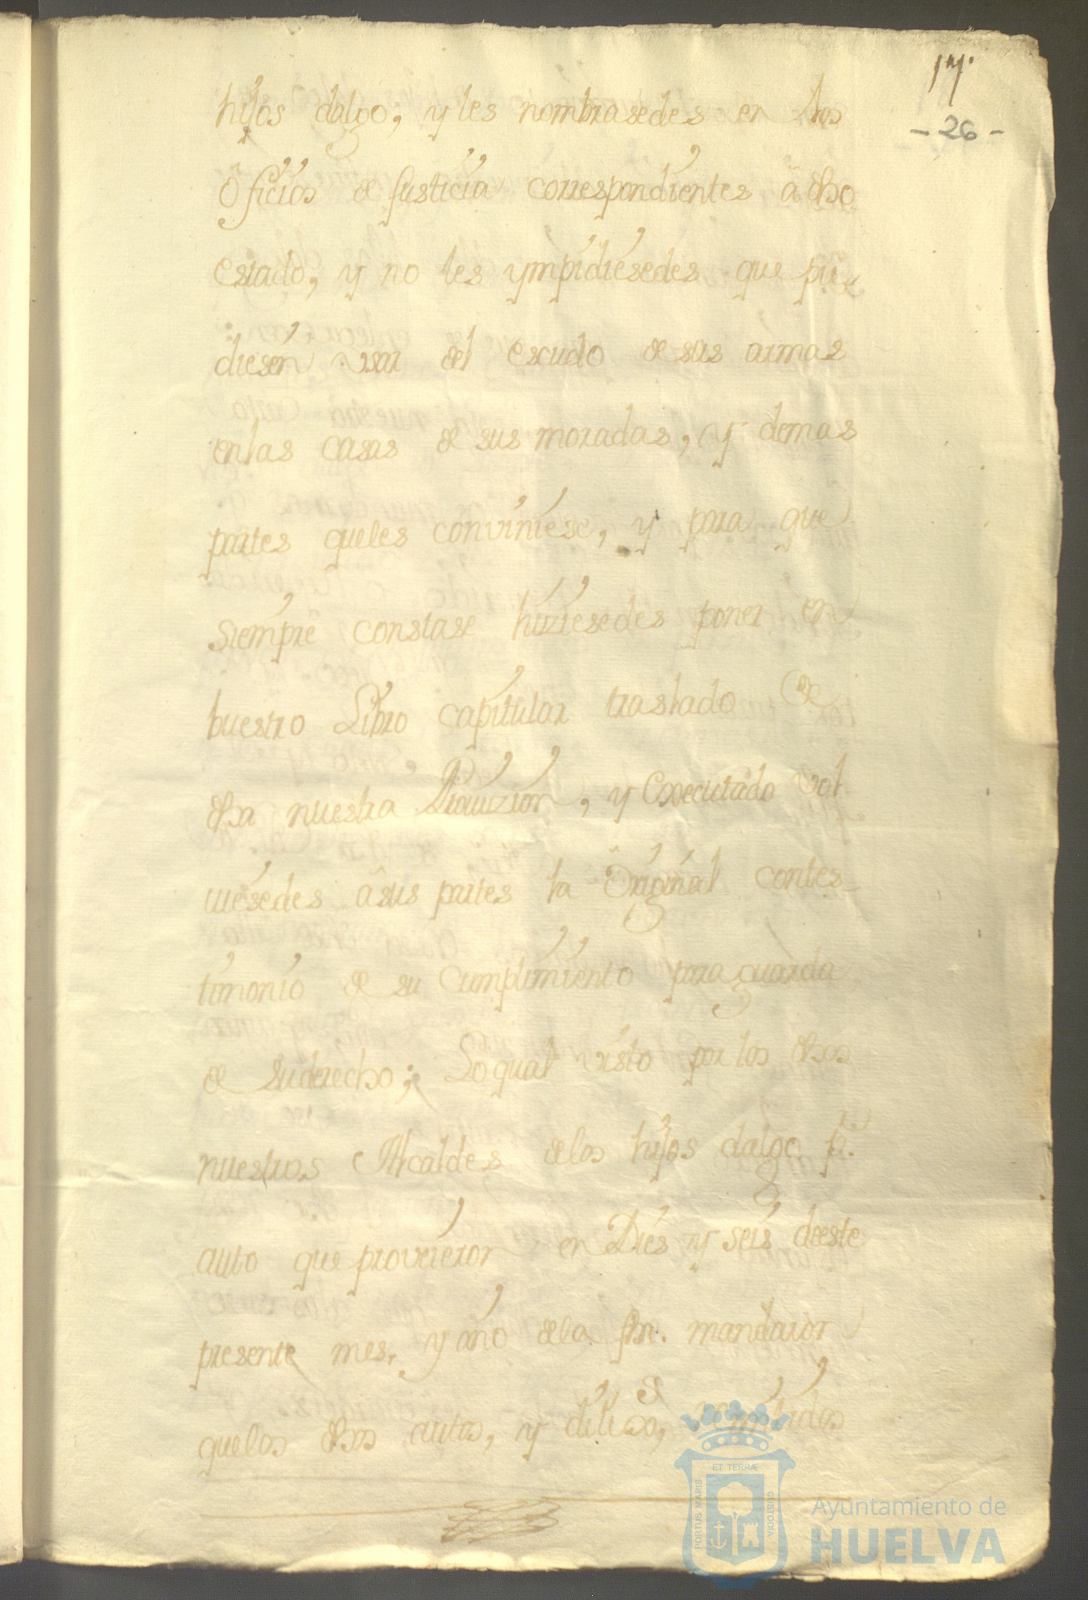 17.
- 26 -
hijos dalgo; y les nombrasedes en los
Oficios de Justicia correspondientes â dho
estado, y no les ympidiesedes que pu
diesen usar del escudo de sus armas
en las casas de sus moradas, y demas
partes queles conviniese, y para que
siempre constase hiziesedes poner en
buestro Libro capitular traslado de
dha nuestra Provizion, y Executado vol
uiesedes âsus partes la Original contes
timonio de su Cumplimiento para guarda
de su derecho; Lo qual visto por los dhos
nuestros Alcaldes delos hijos dalgo
auto que proveieron en Dies y seis deeste
presente mes, y año dela fha. mandaron
quelos dhos autos, y dilixas, remitidos
ET TERRÆ
PORTUS MARIS
CUSTODIA
Ayuntamiento de
HUELVA